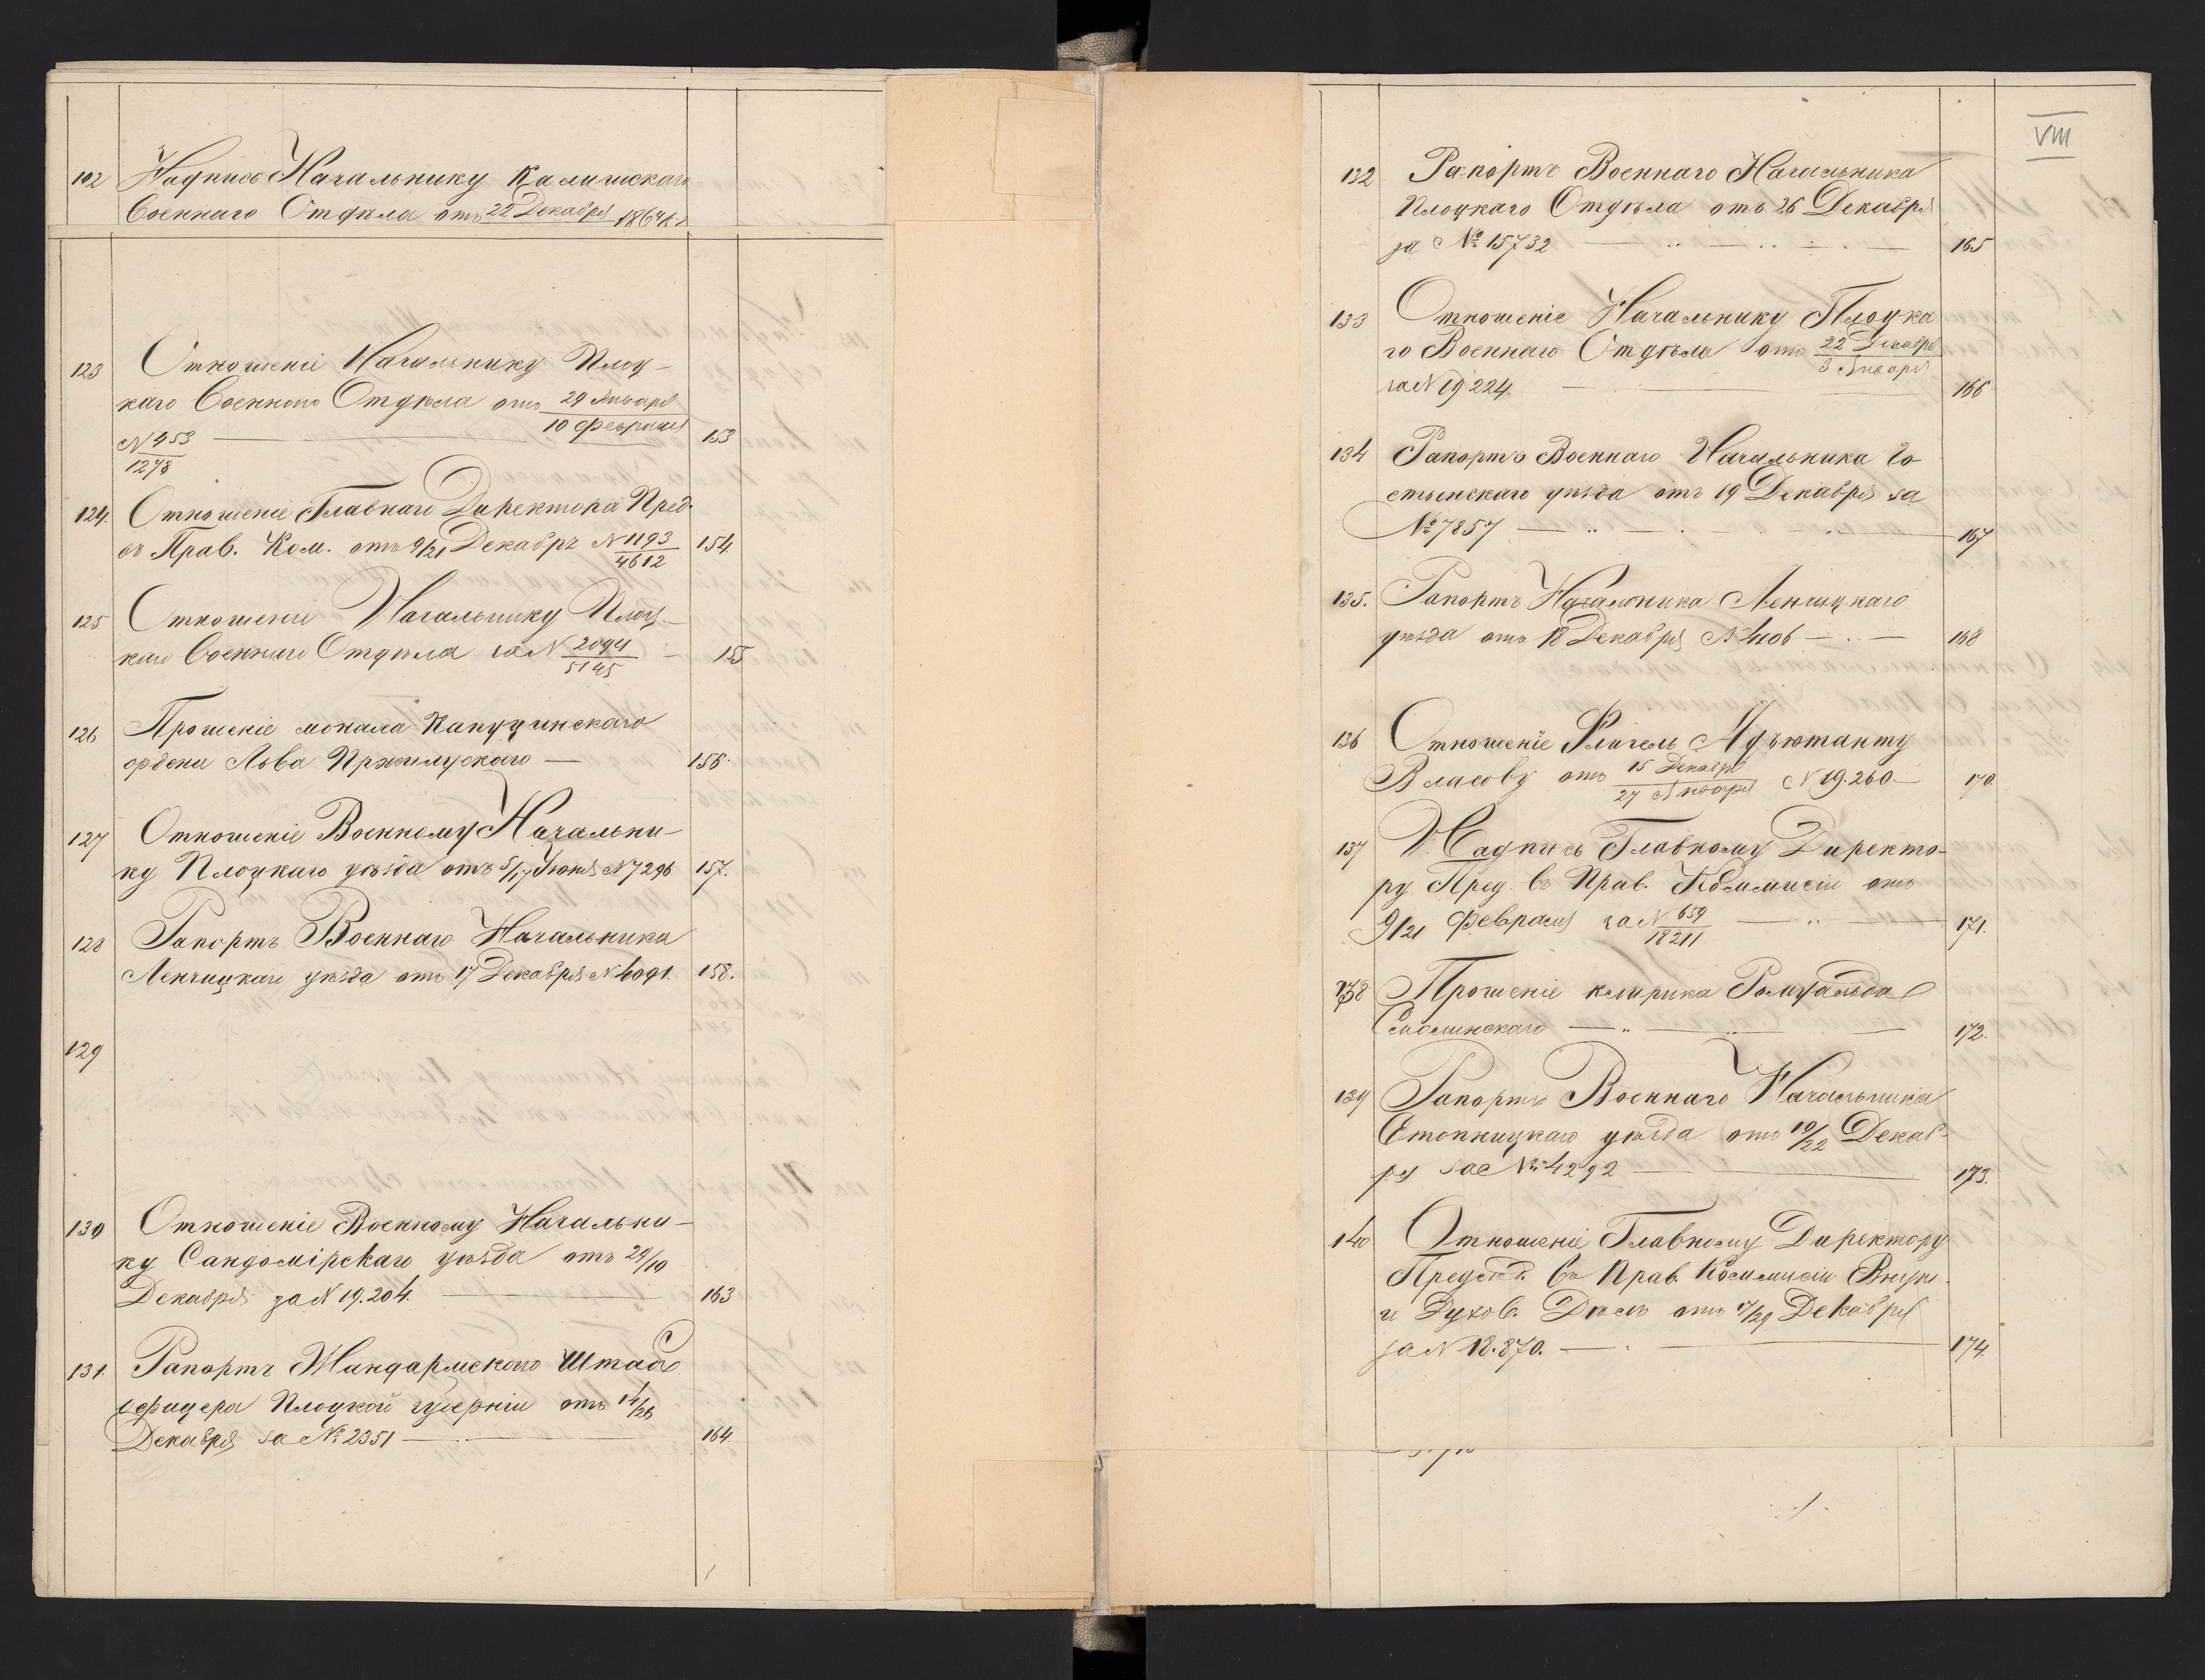 102 Надпись Начальнику Калишскаго
Военнаго Отдѣла отъ 22 Декабря 1864 г.
123 Отношеніе Начальнику Плоц-
каго Военнаго Отдѣла отъ 29 Января/10 Февраля
N 453/1278 153
124. Отношеніе Главнаго Директора Пред.
въ Прав. Ком. отъ 9/21 Декабря N 1193/4612 154.
125 Отношеніе Начальнику Плоц-
каго Военнаго Отдѣла за N 2094/5145 155
126 Прошеніе монаха Капуцинскаго
ордена Льва Пржилускаго 156.
127 Отношеніе Военному Начальни-
ку Плоцкаго уѣзда отъ 5/17 Іюня N 7296 157.
128 Рапортъ Военнаго Начальника
Ленчицкаго уѣзда отъ 17 Декабря N 4091. 158.
129
130 Отношеніе Военному Начальни-
ку Сандомірскаго уѣзда отъ 29/10
Декабря за N 19.204. 163
131. Рапортъ Жандармскаго Штабъ
офицера Плоцкой губерніи отъ 14/26
Декабря за № 2351 164.
VIII
132 Рапортъ Военнаго Начальника
Плоцкаго Отдѣла отъ 26 Декабря
за № 15732 165
133 Отношеніе Начальнику Плоцка
го Военнаго Отдѣла отъ 22 Декабря/3 Января
за N 19224. 166
134 Рапортъ Военнаго Начальника Го
стынскаго уѣзда отъ 19 Декабря за
№ 7857 167
135. Рапортъ Начальника Ленчицкаго
уѣзда отъ 18 Декабря N 4106 168
136 Отношеніе Флигель Адъютанту
Власову отъ 15 Декабря/27 Января N 19.260 170.
137 Надпись Главному Директо-
ру Пред. въ Прав. Коммисіи отъ
9/21 Февраля за N 659/18211 171.
138 Прошеніе клирика Ромуальда
Смолинскаго 172.
139 Рапортъ Военнаго Начальника
Стопницкаго уѣзда отъ 10/22 Декаб-
ря за № 4292 173.
140 Отношеніе Главному Директору
Предсѣд. въ Прав. Коммисіи Внутр.
и Духов. Дѣлъ отъ 17/29 Декабря
за N 18.870. 174.